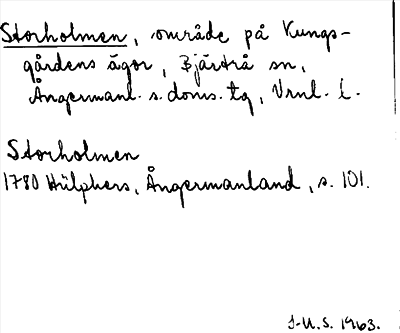 Storholmen, område på Kungs-
gårdens ägor, Bjärtrå sn,
Ångermanl. s. doms. tg, Vrnl. l.
Storholmen
1780 Hülphers, Ångermanland, s. 101.
J-U.S. 1963.